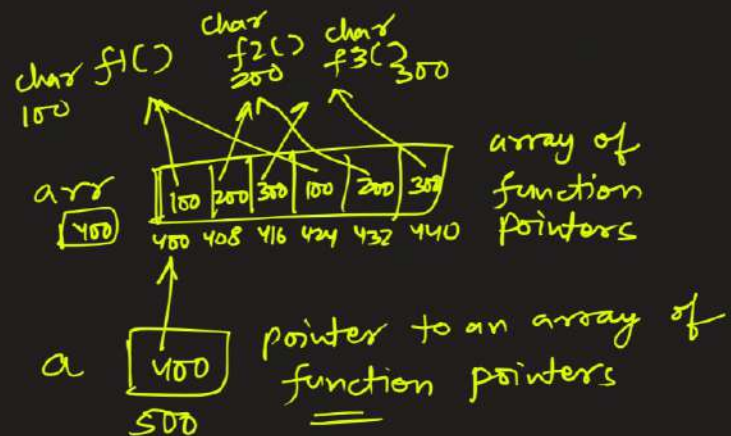 char f1()
100
char
f2()
200
char
f3()
300
arr
400
100 200 300 100 200 300
400 408 416 424 432 440
array of
function
pointers
a
400
500
pointer to an array of
function pointers